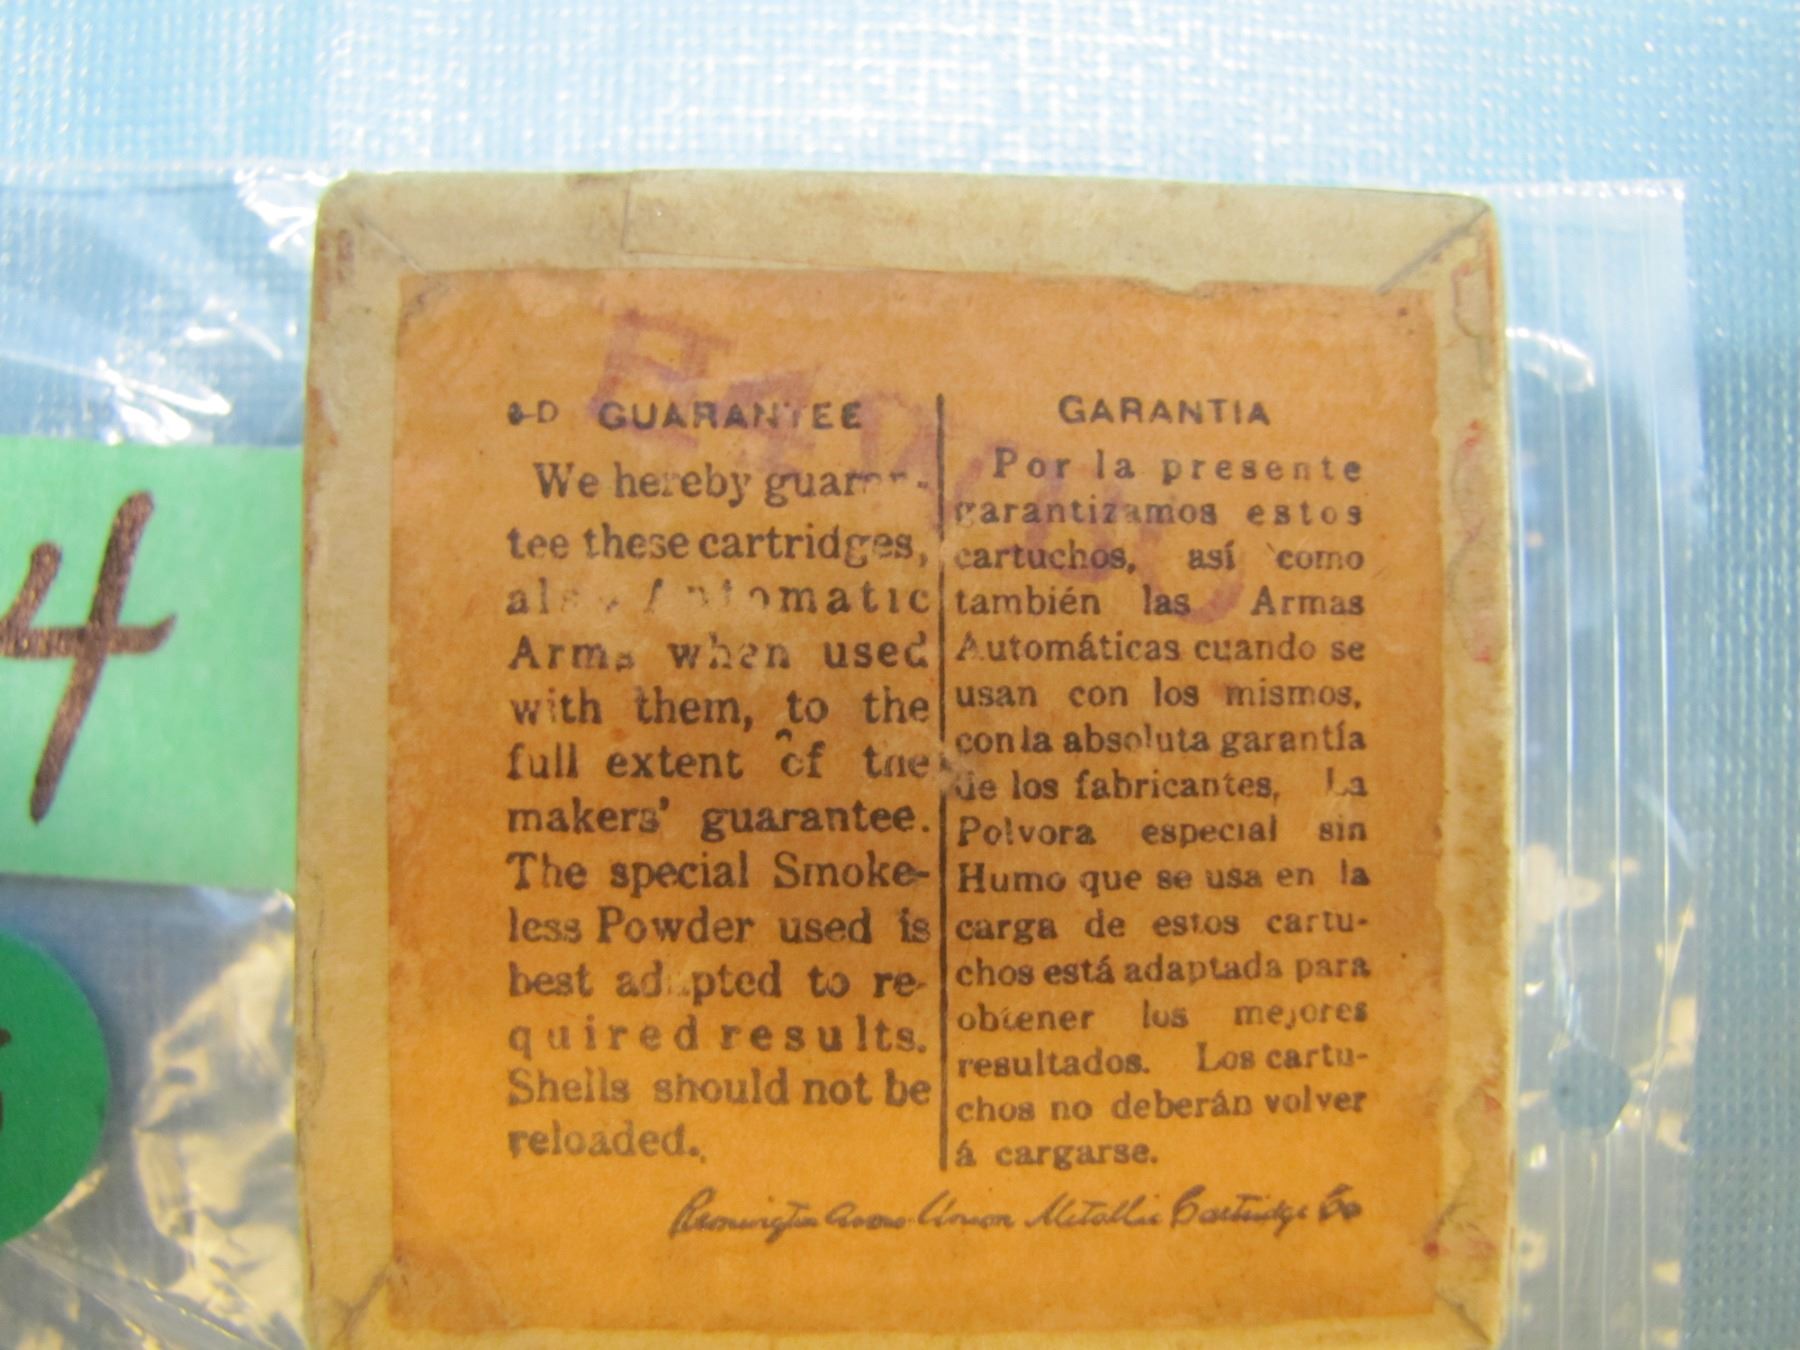 4
8-D GUARANTEE
We hereby guaran-
tee these cartridges,
also Automatic
Arms when used
with them, to the
full extent of the
makers' guarantee.
The special Smoke-
less Powder used is
best adapted to re-
quired results.
Shells should not be
reloaded.
GARANTIA
Por la presente
garantizamos estos
cartuchos, así como
también las Armas
Automáticas cuando se
usan con los mismos,
con la absoluta garantía
de los fabricantes, La
Polvora especial sin
Humo que se usa en la
carga de estos cartu-
chos está adaptada para
obtener los mejores
resultados. Los cartu-
chos no deberán volver
á cargarse.
Remington Arms-Union Metallic Cartridge Co